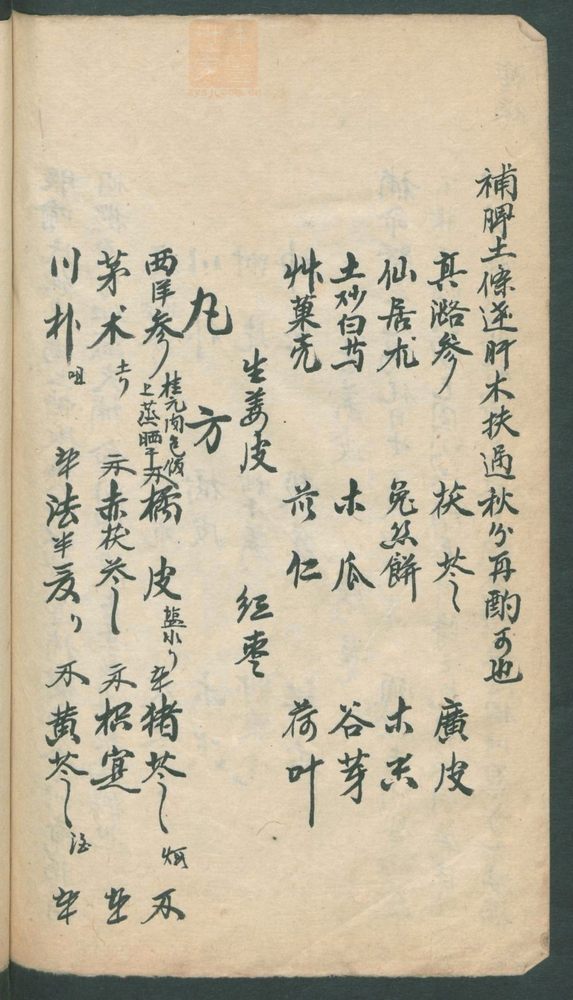 補脾土條逹肝木扶過秋分再酌可也
真潞參 茯苓 廣皮
仙居朮 兔絲餅 木香
土炒白芍 木瓜 谷芽
艸菓壳 苡仁 荷叶
生姜皮 紅枣
丸方
西洋參 桂元肉包飯上蒸晒干 橘皮 鹽水 猪苓
茅术 赤茯苓 枳寔
川朴 法半夏 黄芩